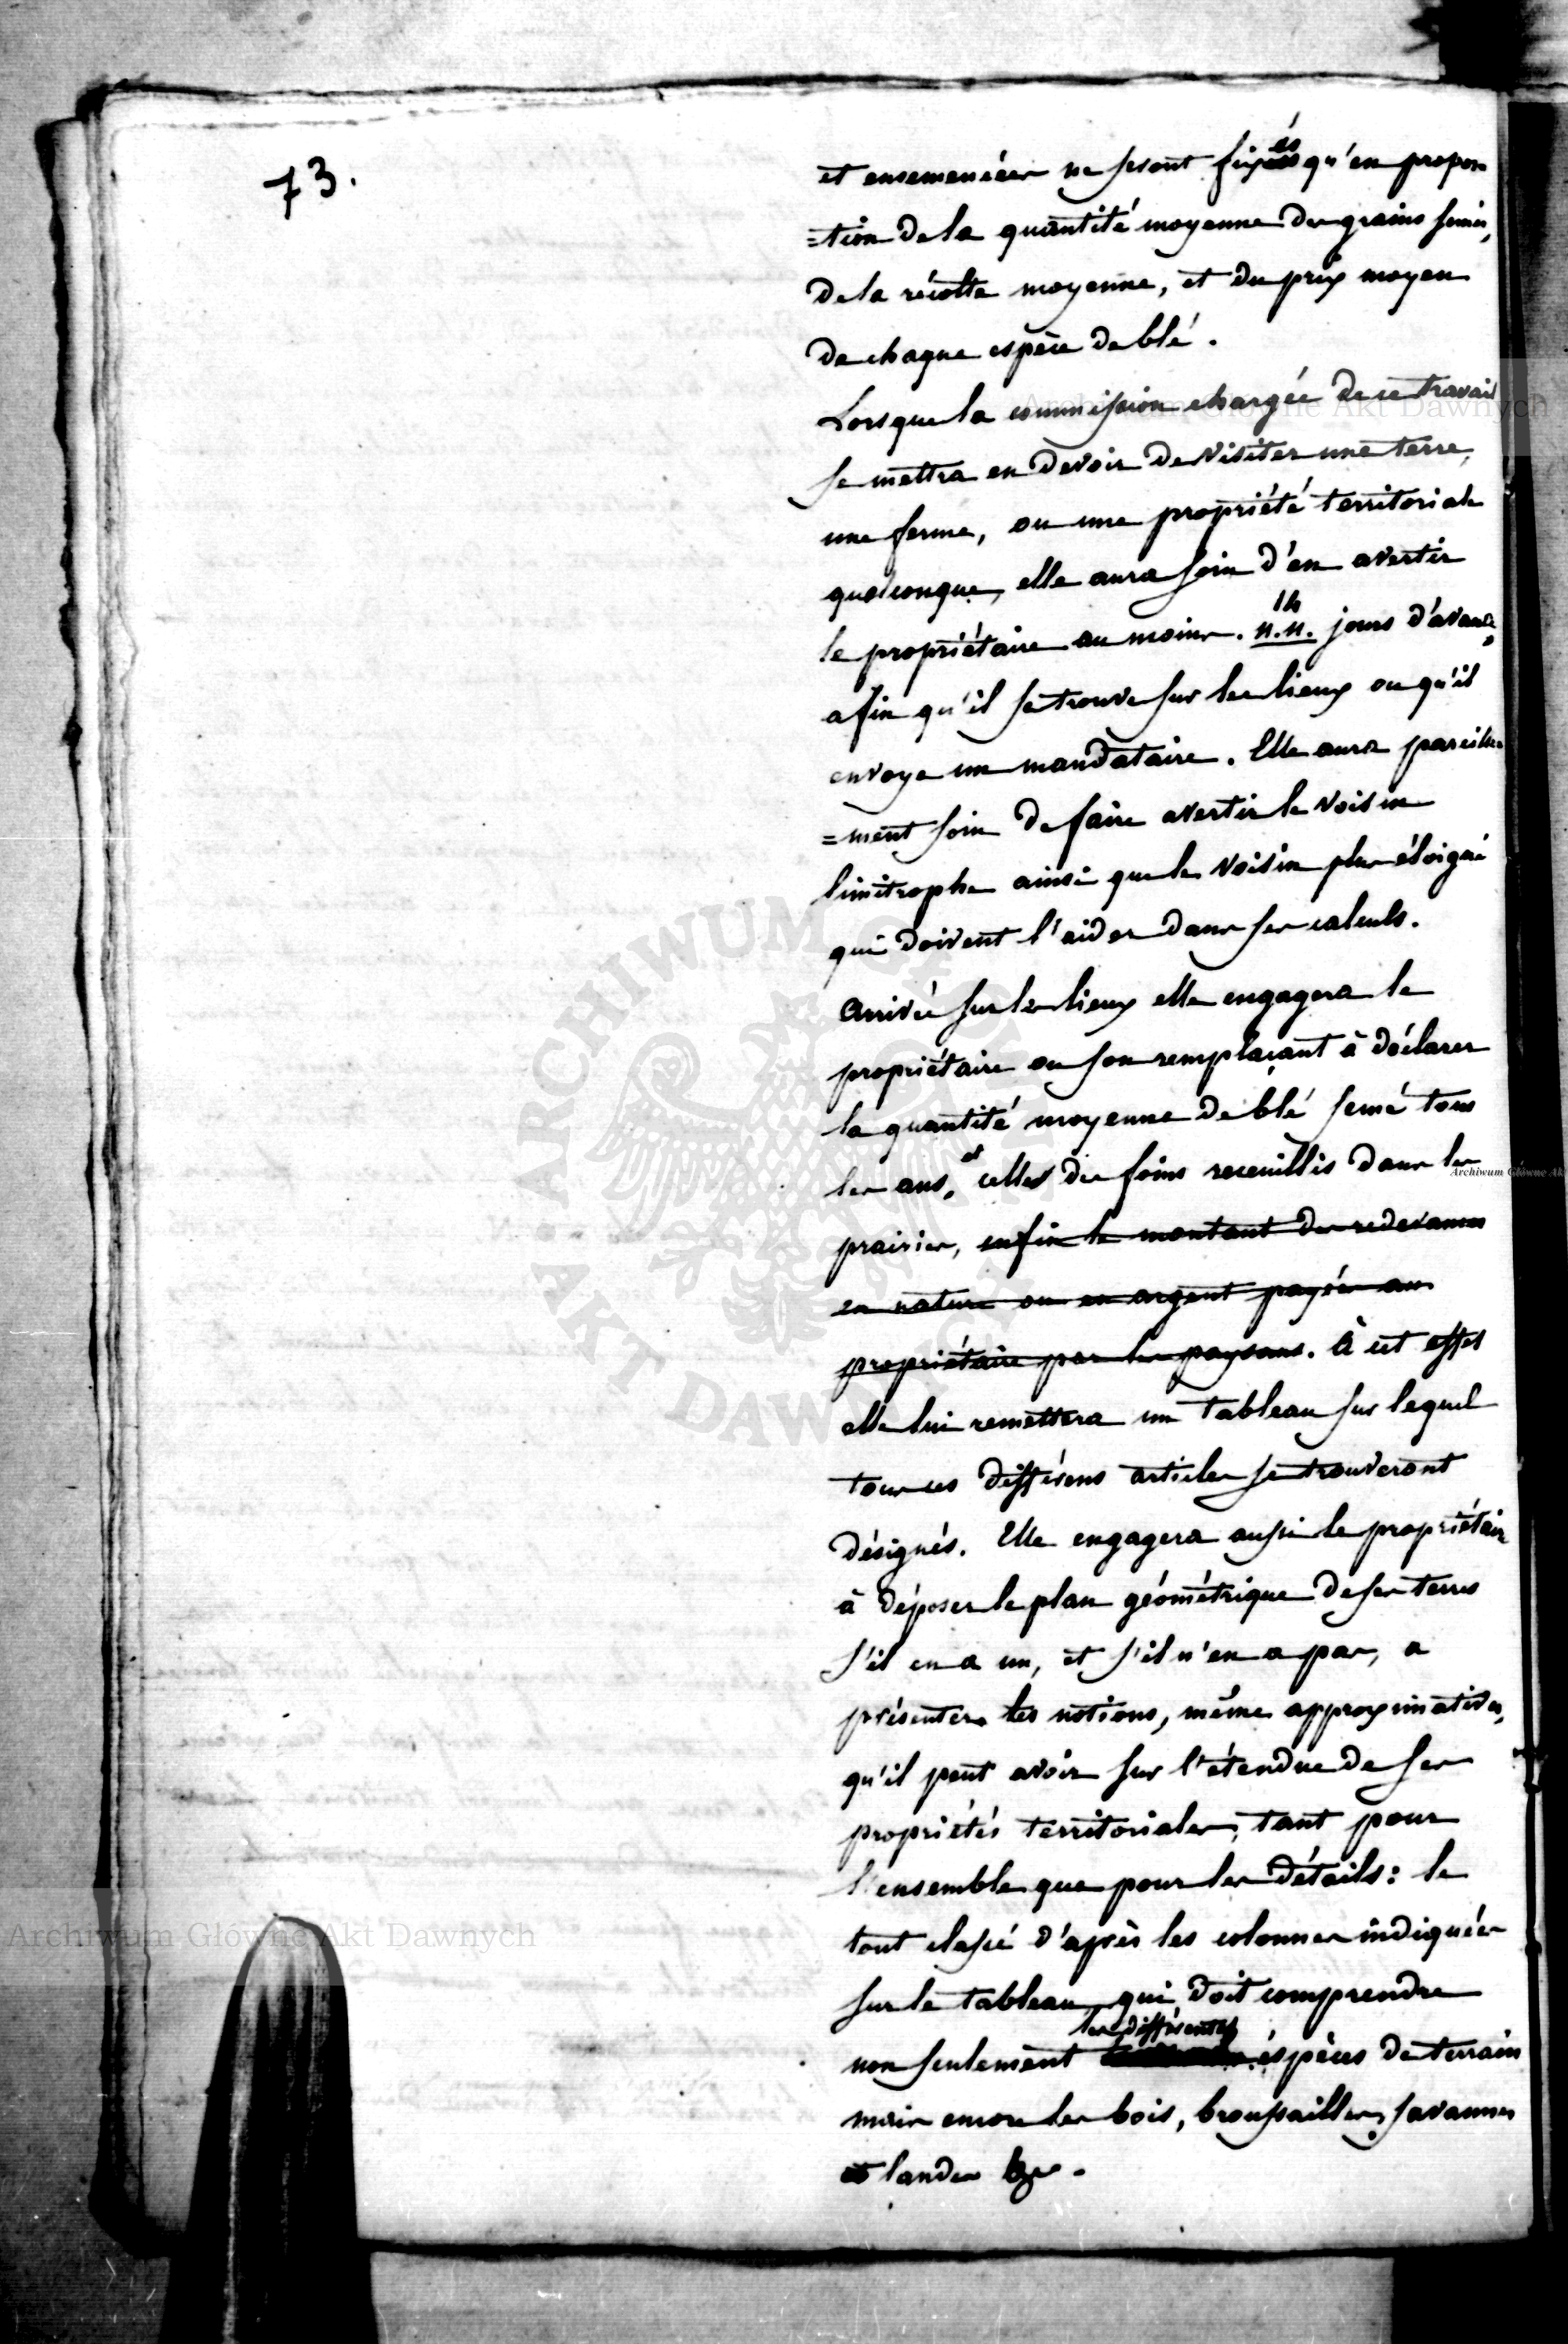 73.
et ensemencées ne seront fixés qu'en propor
=tion de la quantité moyenne des grains semés,
de la récolte moyenne, et du prix moyen
de chaque espèce de blé.
Lorsque la commission chargée de ce travail
se mettra en devoir de visiter une terre,
une ferme, ou une propriété territoriale
quelconque, elle aura soin d'en avertir
14
le propriétaire au moins. n.n. jours d'avance,
afin qu'il se trouve sur les lieux ou qu'il
envoye un mandataire. Elle aura pareille
=ment soin de faire avertir le voisin
limitrophe ainsi que le voisin plus éloigné
qui doivent l'aider dans ses calculs.
Arrivée sur les lieux elle engagera le
propriétaire ou son remplaçant à déclarer
la quantité moyenne de blé semé tous
les ans, et celles des foins receuillis dans les
prairies, enfin le montant des redevances
en nature ou en argent payées au
propriétaire par les paysans. À cet effet
elle lui remettera un tableau sur lequel
tous ces différens articles se trouveront
désignés. Elle engagera aussi le propriétaire
à déposer le plan géométrique de ses terres
s'il en a un, et s'il n'en a pas, a
présenter les notions, même approximatives,
qu'il peut avoir sur l'étendue de ses
propriétés territoriales, tant pour
l'ensemble que pour les détails: le
tout classé d'après les colonnes indiquées
sur le tableau, qui doit comprendre
les différentes
non seulement espèces de terrain
mais encore les bois, broussailles, savannes
et landes &c.
Archiwum Główne Akt Dawnych
Archiwum Główne Ak
ARCHIWUM GŁÓWNE AKT DAWNYCH
Archiwum Główne Akt Dawnych